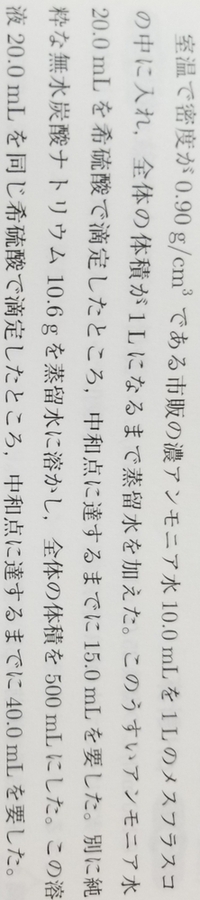 室温で密度が 0.90 g/cm³ である市販の濃アンモニア水 10.0 mL を 1 L のメスフラスコ
の中に入れ，全体の体積が 1 L になるまで蒸留水を加えた。このうすいアンモニア水
20.0 mL を希硫酸で滴定したところ，中和点に達するまでに 15.0 mL を要した。別に純
粋な無水炭酸ナトリウム 10.6 g を蒸留水に溶かし，全体の体積を 500 mL にした。この溶
液 20.0 mL を同じ希硫酸で滴定したところ，中和点に達するまでに 40.0 mL を要した。